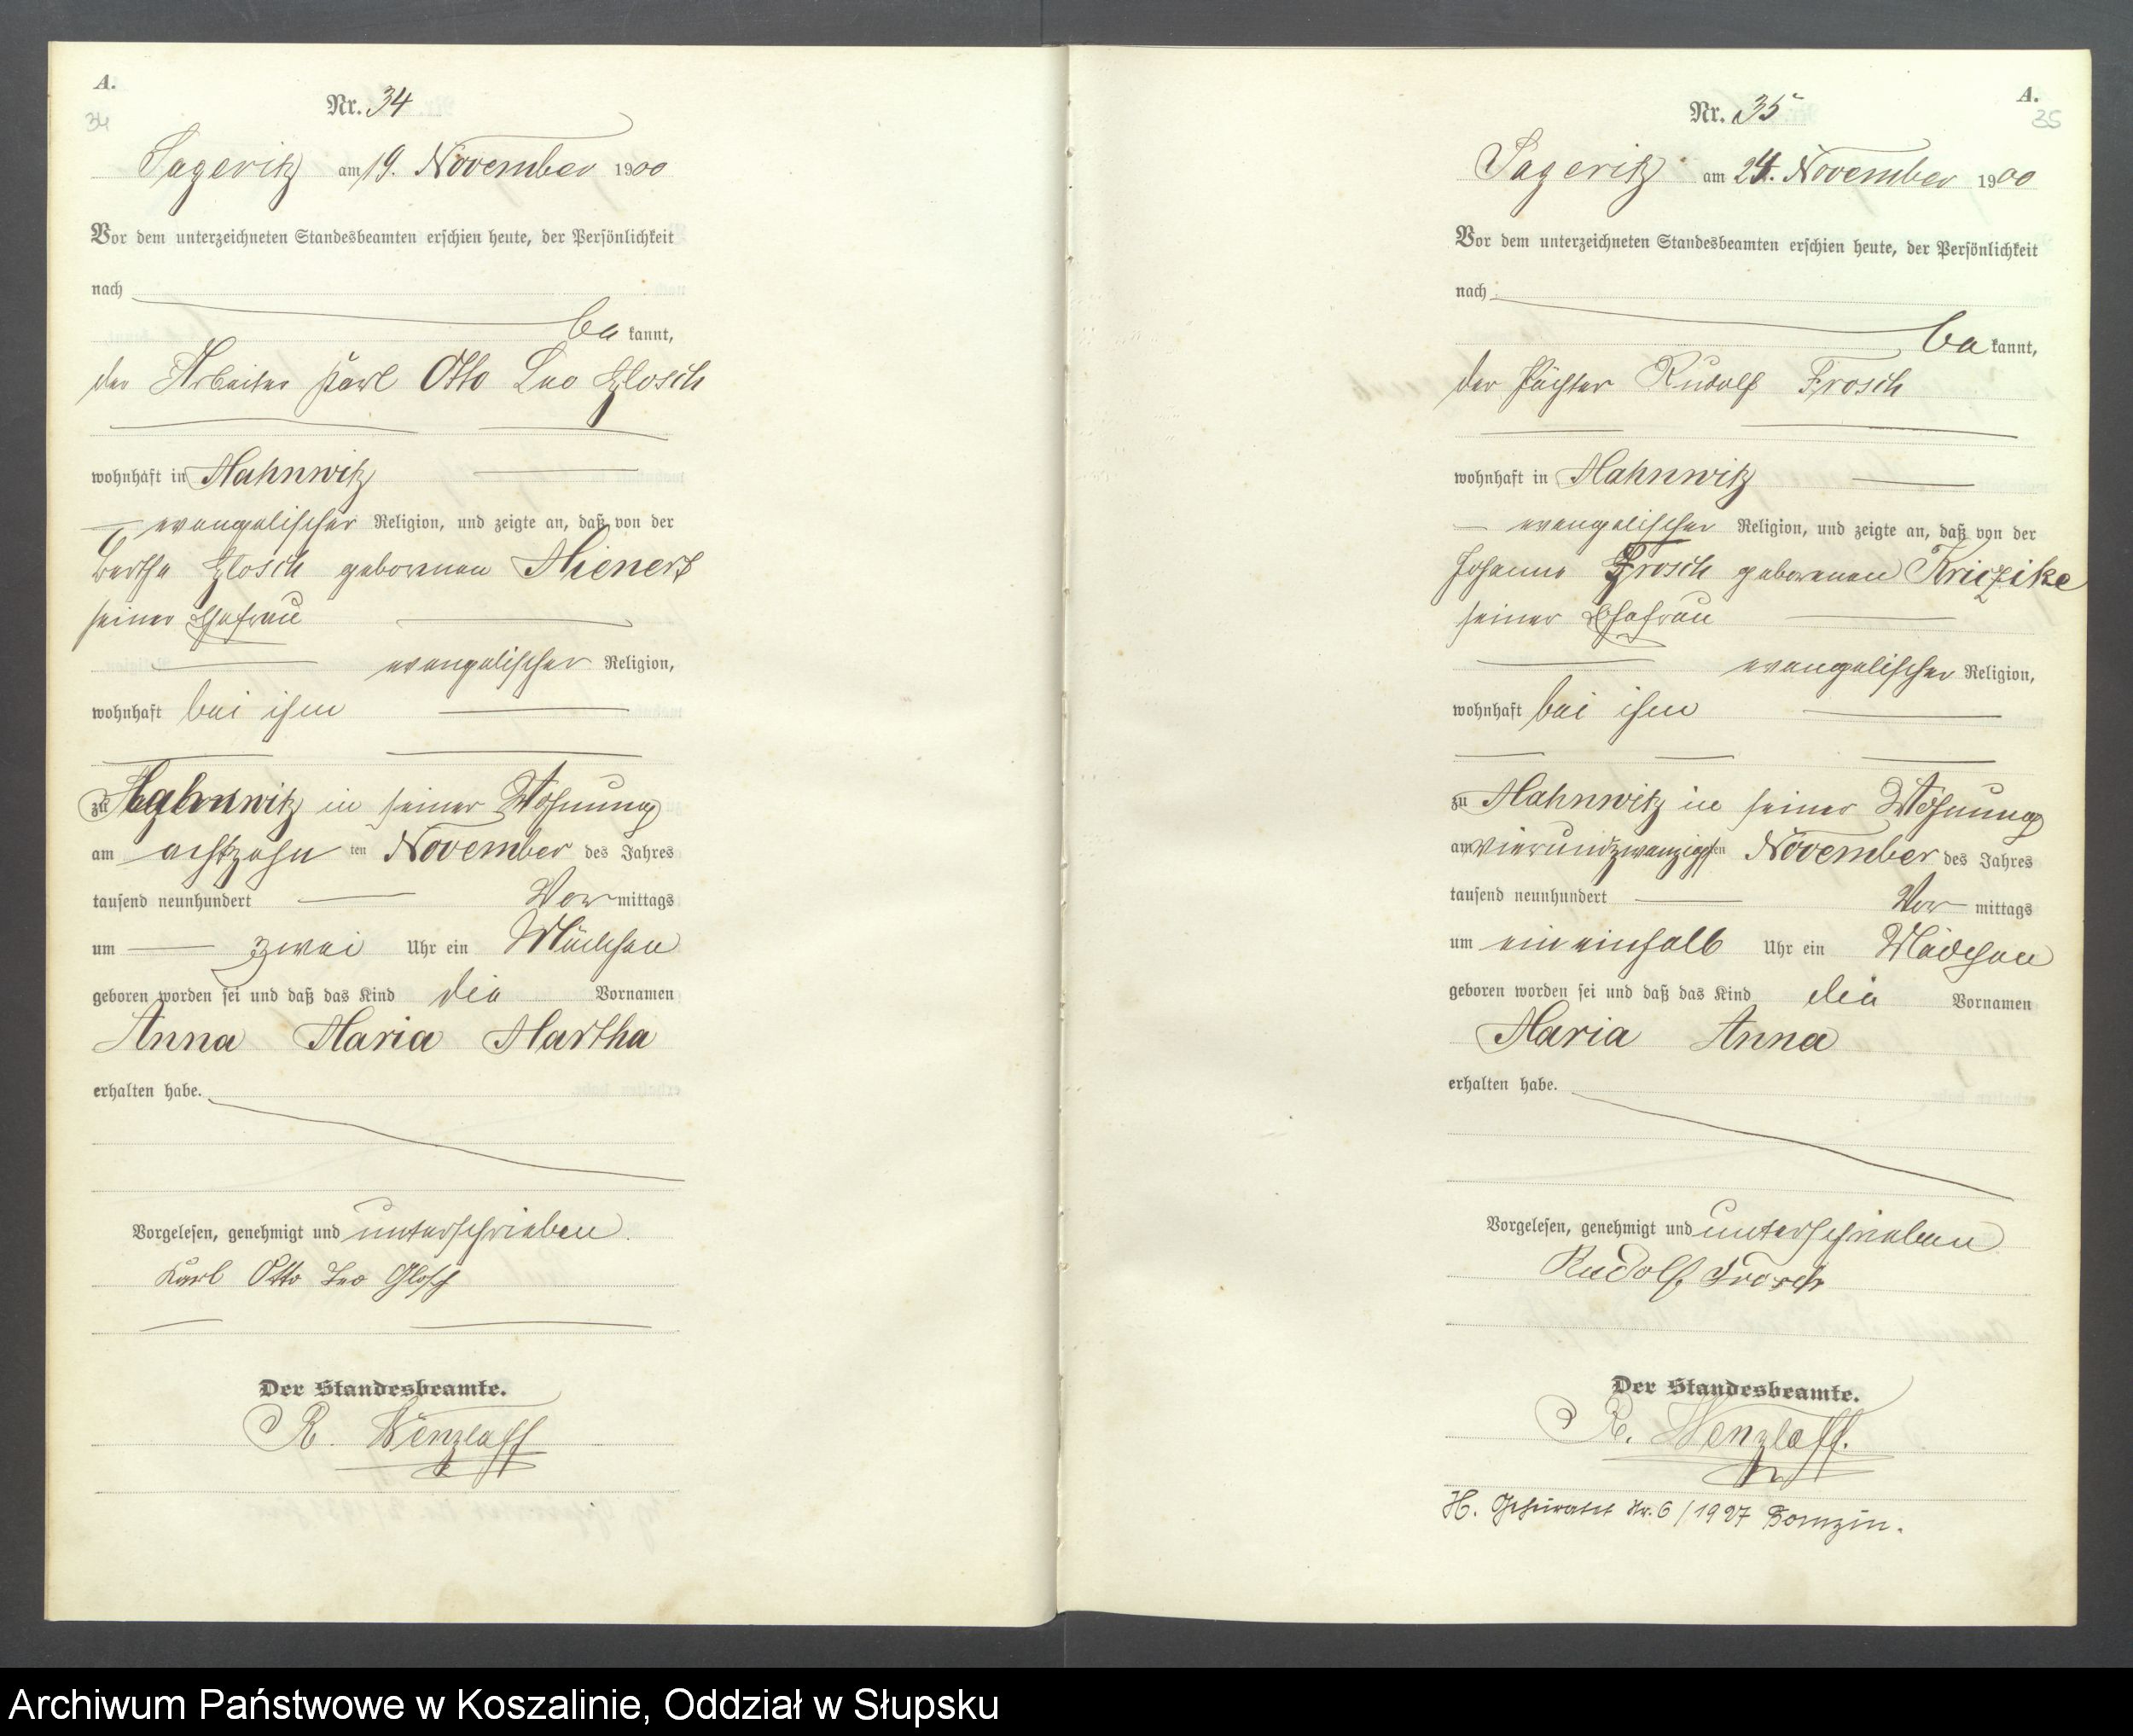 A.
34
Nr. 34
Sageritz am 19. November 1900
Vor dem unterzeichneten Standesbeamten erschien heute, der Persönlichkeit
nach
be kannt,
der Arbeiter Karl Otto Leo Glosch
wohnhaft in Mahnwitz
evangelischer Religion, und zeigte an, daß von der
Bertha Glosch geborenen Mienert
seiner Ehefrau
evangelischer Religion,
wohnhaft bei ihm
zu Mahnwitz in seiner Wohnung
am achtzehn ten November des Jahres
tausend neunhundert Vor mittags
um zwei Uhr ein Mädchen
geboren worden sei und daß das Kind die Vornamen
Anna Maria Martha
erhalten habe.
Vorgelesen, genehmigt und unterschrieben
Karl Otto Leo Glosch
Der Standesbeamte.
R. Wenzlaff
A.
35
Nr. 35
Sageritz am 24. November 1900
Vor dem unterzeichneten Standesbeamten erschien heute, der Persönlichkeit
nach
be kannt,
der Pächter Rudolf Frosch
wohnhaft in Mahnwitz
evangelischer Religion, und zeigte an, daß von der
Johanne Frosch geborenen Kriezike
seiner Ehefrau
evangelischer Religion,
wohnhaft bei ihm
zu Mahnwitz in seiner Wohnung
am vierundzwanzigsten November des Jahres
tausend neunhundert Vor mittags
um ein einhalb Uhr ein Mädchen
geboren worden sei und daß das Kind die Vornamen
Maria Anna
erhalten habe.
Vorgelesen, genehmigt und unterschrieben
Rudolf Frosch
Der Standesbeamte.
R. Wenzlaff.
H. Geheiratet Nr. 6/1927
Archiwum Państwowe w Koszalinie, Oddział w Słupsku